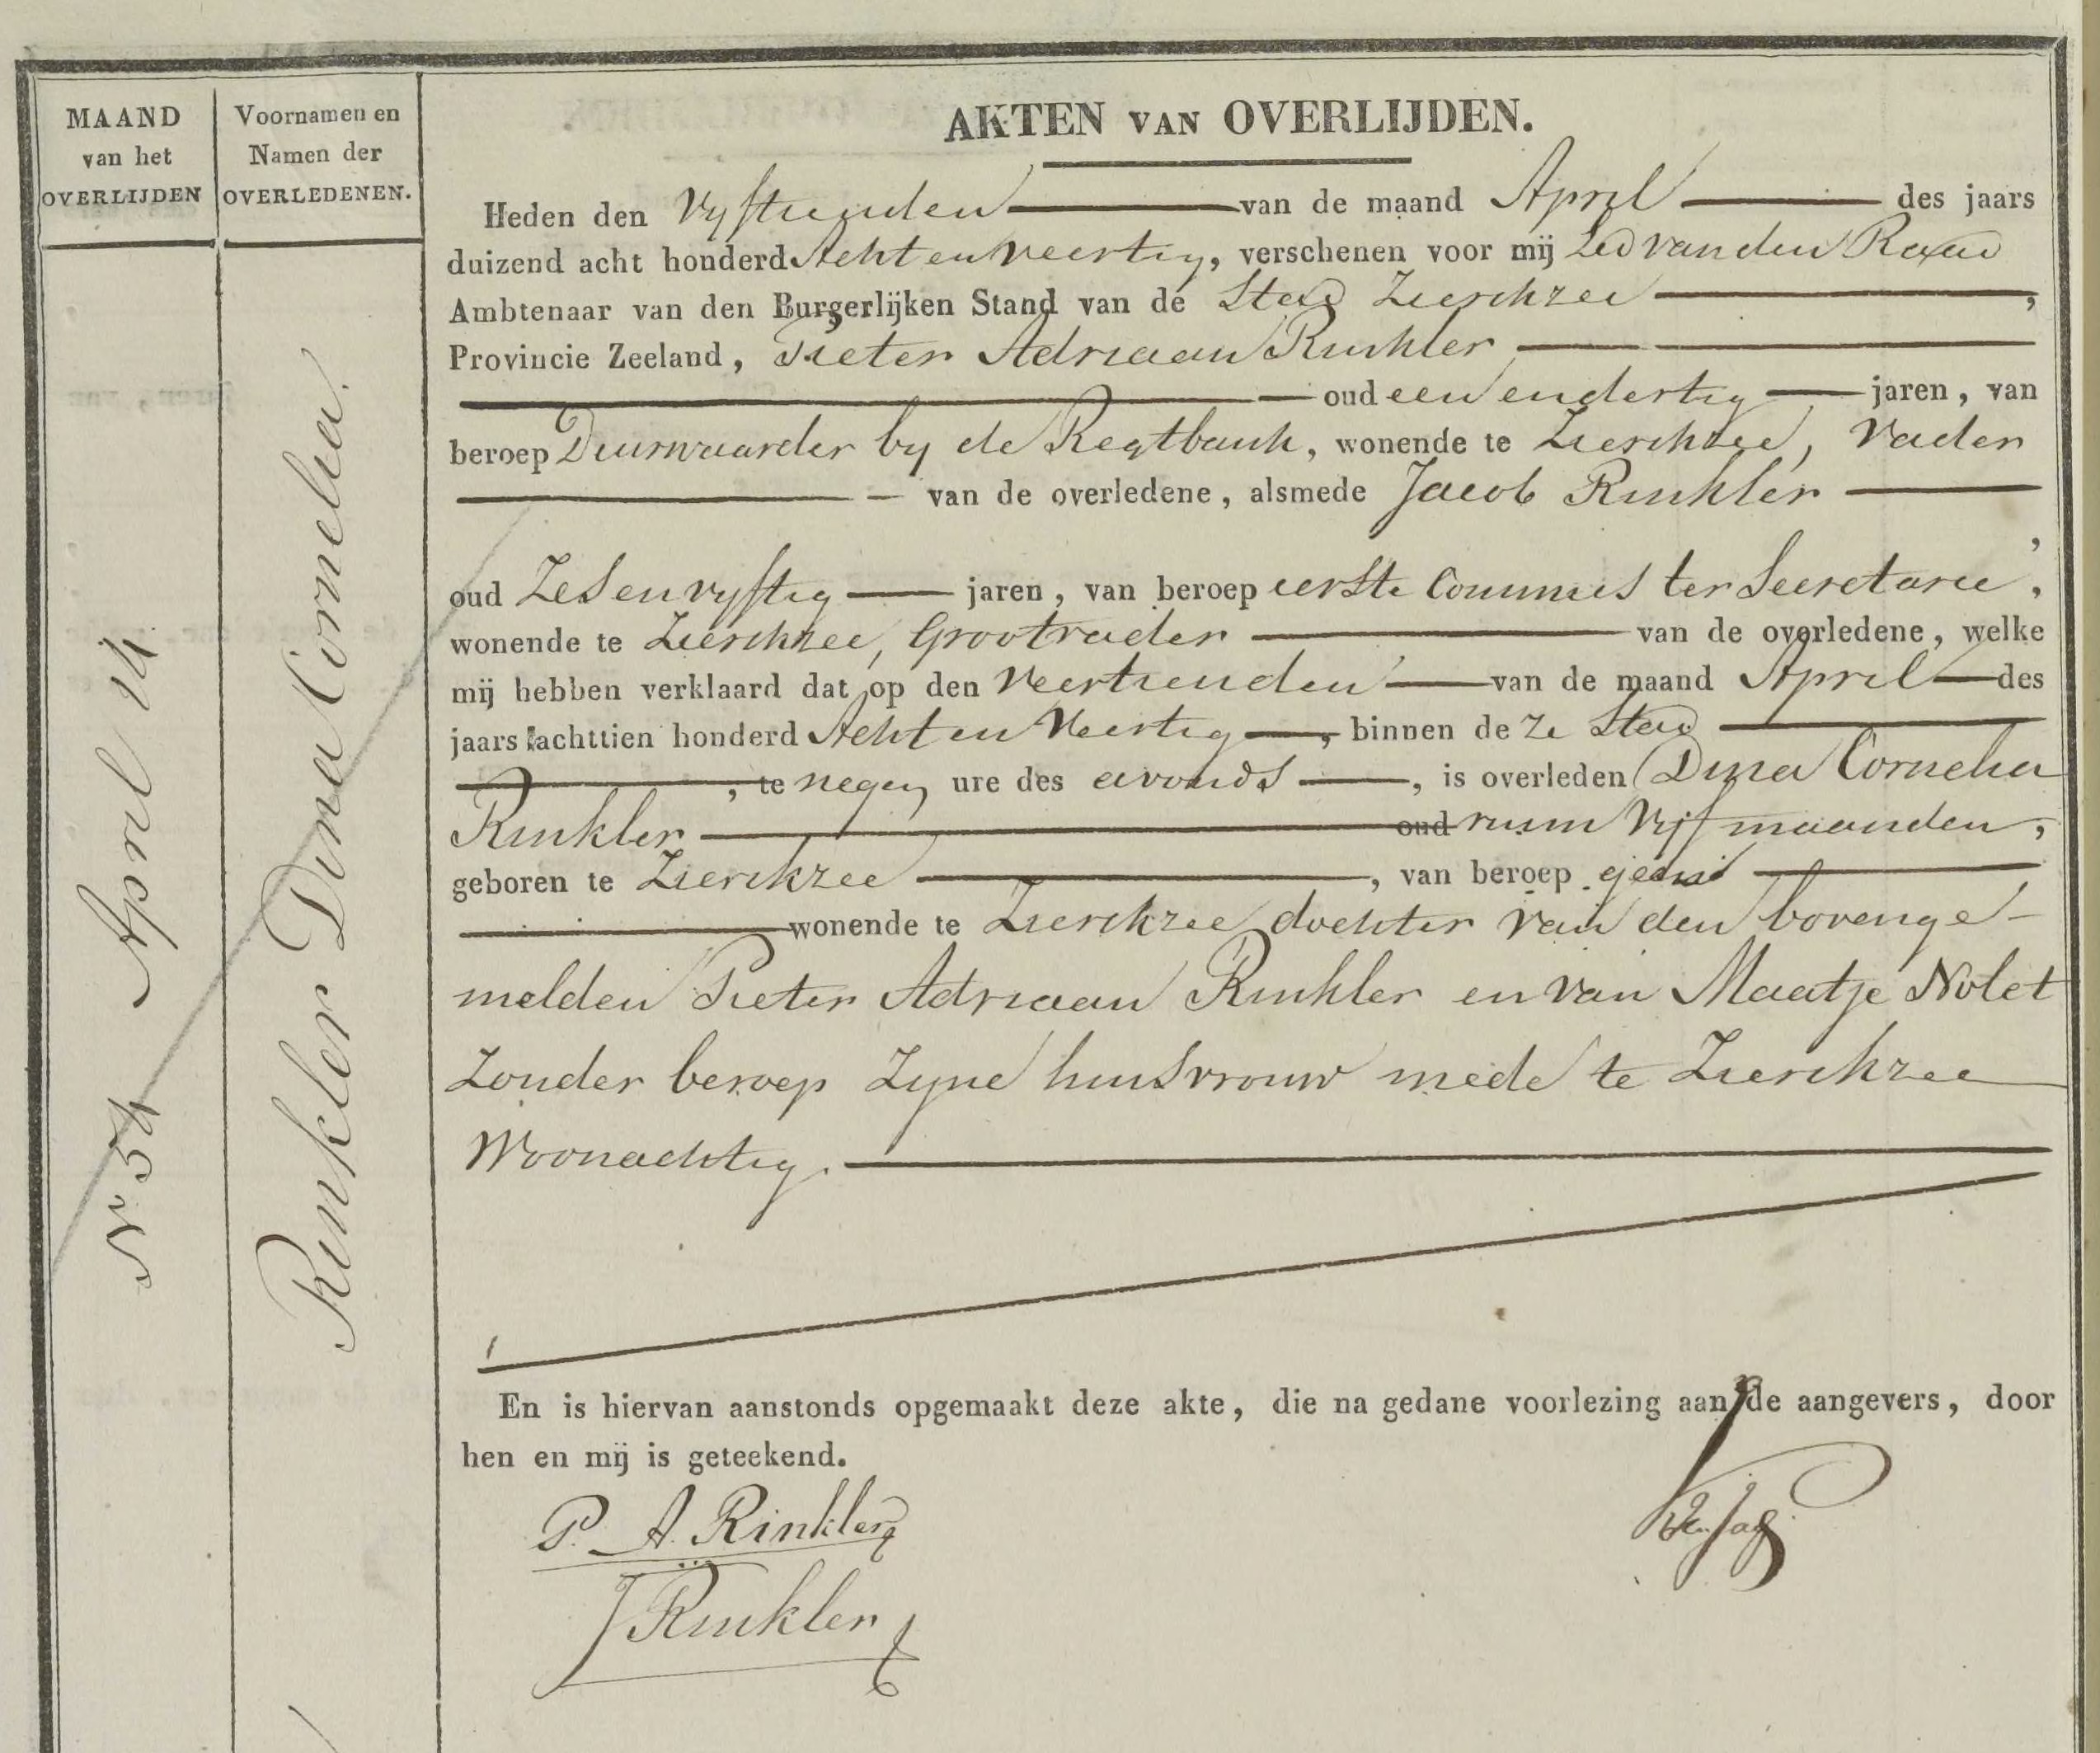 MAAND
van het
OVERLIJDEN
Voornamen en
Namen der
OVERLEDENEN.
No 54 April 14
Rinkler Dina Cornelia.
AKTEN VAN OVERLIJDEN.
Heden den Vyftienden van de maand April des jaars
duizend acht honderd Acht en Veertig, verschenen voor mij Lid van den Raad
Ambtenaar van den Burgerlijken Stand van de Stad Zierikzee,
Provincie Zeeland, Pieter Adriaan Rinkler
oud een en dertig jaren, van
beroep Deurwaarder by de Regtbank, wonende te Zierikzee, Vader
van de overledene, alsmede Jacob Rinkler,
oud Zes en vyftig jaren, van beroep eerste Commies ter Secretarie,
wonende te Zierikzee, Grootvader van de overledene, welke
mij hebben verklaard dat op den Veertienden van de maand April des
jaars achttien honderd Acht en Veertig, binnen deze Stad
, te negen ure des avonds, is overleden Dina Cornelia
Rinkler oud ruim Vyf maanden,
geboren te Zierikzee, van beroep geene
wonende te Zierikzee dochter van den bovenge-
melden Pieter Adriaan Rinkler en van Maatje Nolet
Zonder beroep Zyne huisvrouw mede te Zierikzee
Woonachtig.
En is hiervan aanstonds opgemaakt deze akte, die na gedane voorlezing aan de aangevers, door
hen en mij is geteekend.
P. A. Rinkler
J Rinkler